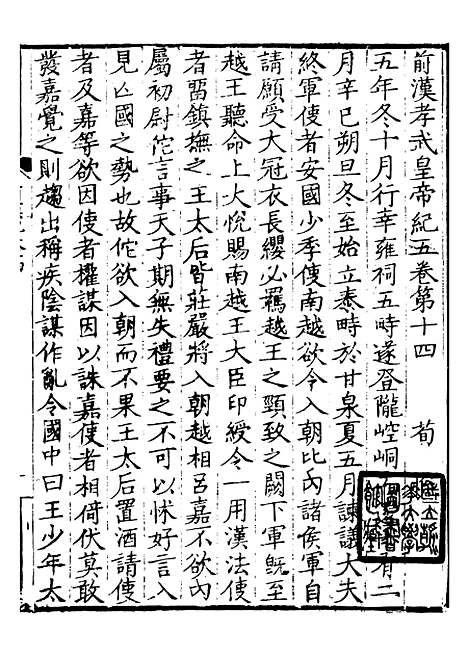 前漢孝武皇帝紀五卷第十四　荀
五年冬十月行幸雍祠五畤遂登隴崆峒有二
月辛巳朔旦冬至始立泰畤於甘泉夏五月諫議大夫
終軍使者安國少季使南越欲令入朝比內諸侯軍自
請願受大冠衣長纓必羈越王之頸致之闕下軍既至
越王聽命上大悅賜南越王大臣印綬令一用漢法使
者畱鎮撫之王太后皆莊嚴將入朝越相呂嘉不欲內
屬初尉佗言事天子期無失禮要之不可以怵好言入
見亾國之勢也故佗欲入朝而不果王太后置酒請使
者及嘉等欲因使者權謀因以誅嘉使者相倚伏莫敢
發嘉覺之則趨出稱疾陰謀作亂令國中曰王少年太